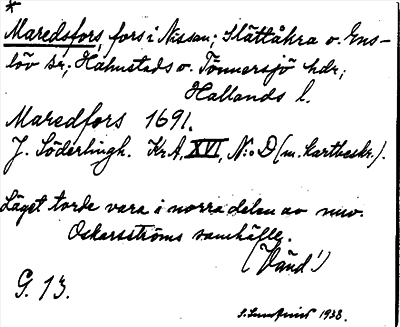 *
Maredsfors, fors i Nissan; Slättåkra o. Ens-
löv sr; Halmstads o. Tönnersjö hdr;
Hallands l.
Maredfors 1691.
J. Söderlingh. Kr.A. XVI, N:o D (m. kartbeskr.).
Läget torde vara i norra delen av nuv.
Oskarsströms samhälle.
G. 13.
1938.